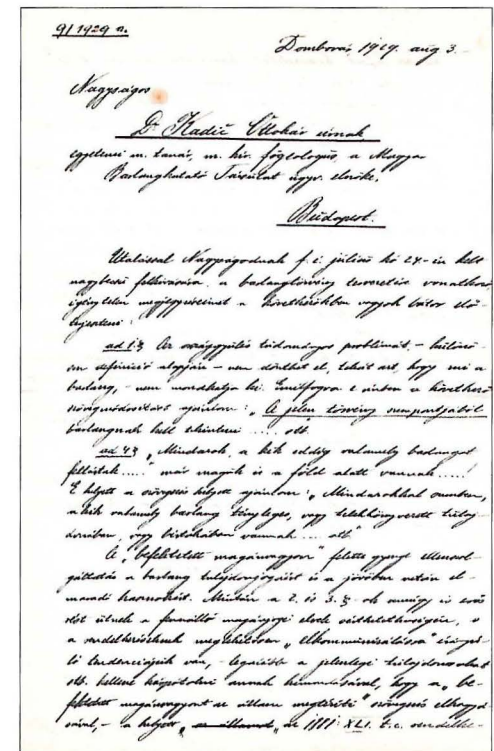 9/1929 n.
Domború, 1929. aug 3.
Nagyságos
Dr Kadić Ottokár úrnak
egyetemi m. tanár, m. kir. főgeologus, a Magyar
Barlangkutató Társulat ügyv. elnöke,
Budapest.
Utalással Nagyságodnak f. é. július hó 24-én kelt
nagybecsű felhívására, a barlangtörvény tervezetére vonatkozó
igénytelen megjegyzéseimet a következőkben vagyok bátor elő-
terjeszteni:
ad 1.§ Az országgyűlés tudományos problémát, – különö-
sen definíció alapján – nem dönthet el, tehát azt, hogy mi a
barlang, – nem mondhatja ki. Ennélfogva e §-ban a következő
szövegmódosítást ajánlom: „A jelen törvény szempontjából
barlangnak kell tekinteni ..... stb.
ad 4§ „Mindazok, a kik eddig valamely barlangot
feltártak.....” már maguk is a föld alatt vannak.....!
E helyett a szövegezés helyett ajánlom: „Mindazokkal szemben,
a kik valamely barlang tényleges, vagy telekkönyvezett tulaj-
donában, vagy birtokában vannak ... stb”
A „befektetett magánvagyon” felette gyenge ellenszol-
gáltatás a barlang tulajdonjogáért és a jövőben netán el-
maradó haszonért. Miután a 2. és 3.§-ok amúgy is erős
rést ütnek a fennálló magánjogi elvek sérthetetlenségén, s
a rendelkezéseknek meglehetősen „elkommunizálásra” irányu-
ló tendenciájuk van, – legalább a jelenlegi tulajdonosokat
stb. kellene kárpótolni annak kimondásával, hogy a „be-
fektetett magánvagyont az állam megtéríti” szövegezés elhagyá-
sával, – a helyett „az 1881: XLI. t.c. rendelke-